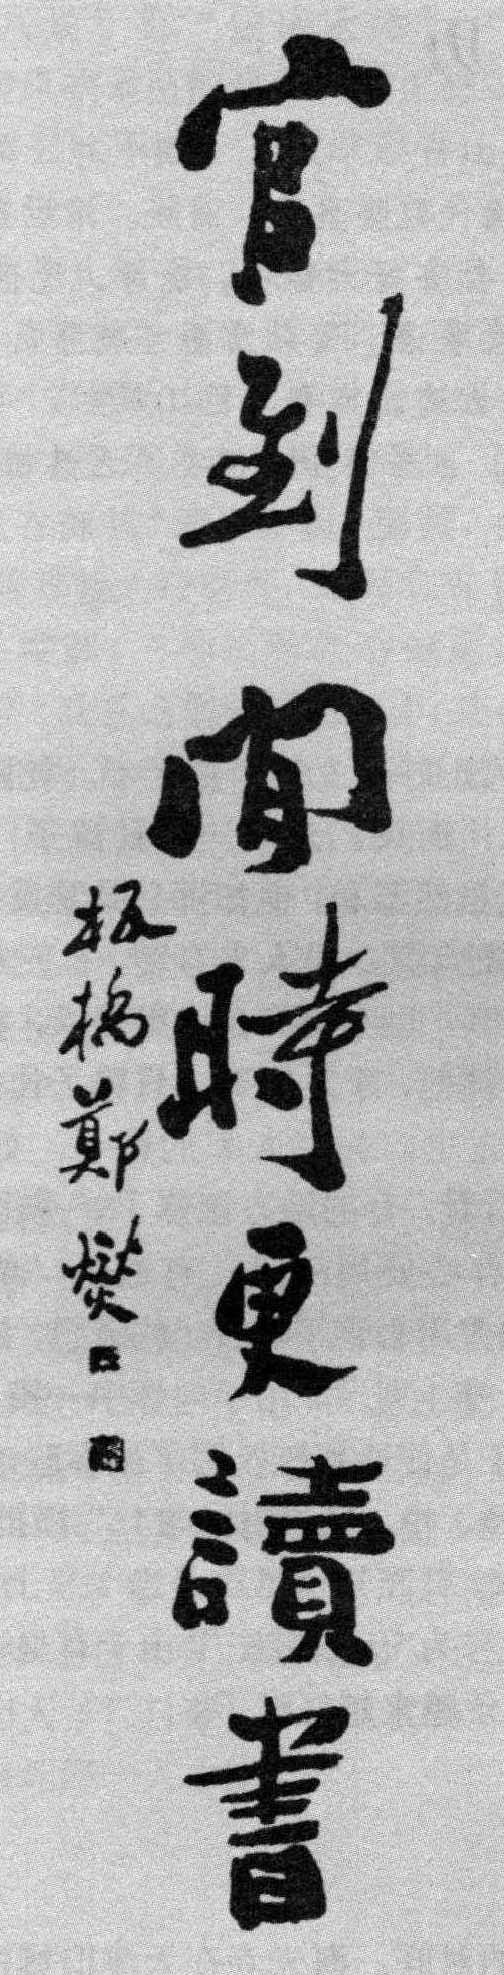 官到閒時更讀書
板橋鄭燮